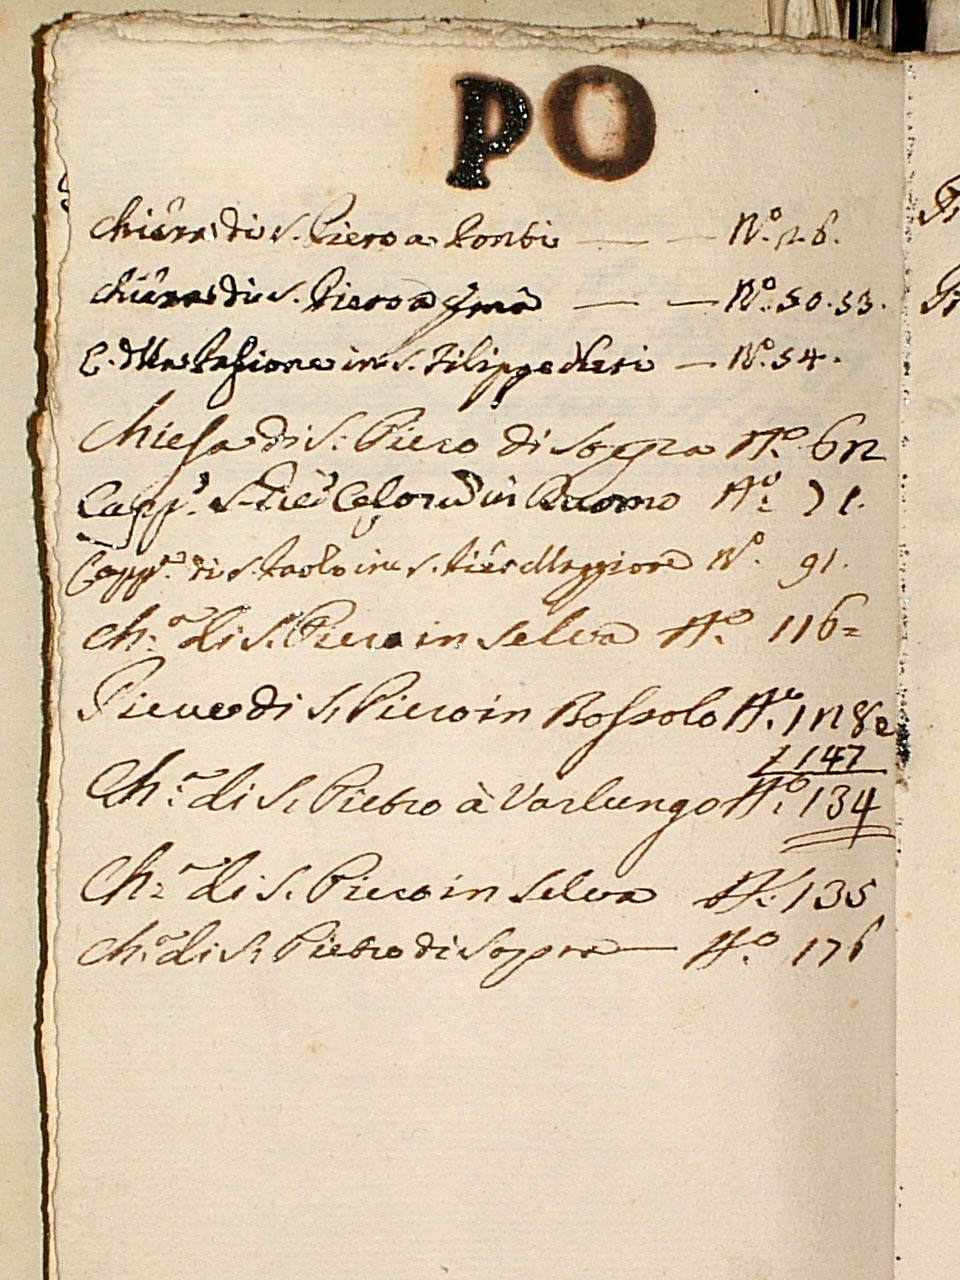 PO
Chiesa di S. Piero a Ponti — — Nº. 26.
Chiesa di S. Piero a — — Nº. 50. 53.
C. della Pasione in S. Filippo Neri — Nº. 54.
Chiesa di S. Piero di Sopra Nº. 62
Capp.ª S. Pier in Duomo Nº. 71.
Capp.ª di S. Paolo in S. Pier Maggiore Nº. 91.
Ch.ª di S. Piero in Selva Nº. 116=
Pieve di S. Piero in Bossolo Nº. 128 e
147
Ch.ª di S. Pietro à Varlungo Nº. 134
Ch.ª di S. Piero in Selva Nº. 135
Ch.ª di S. Pietro di Sopra — Nº. 176